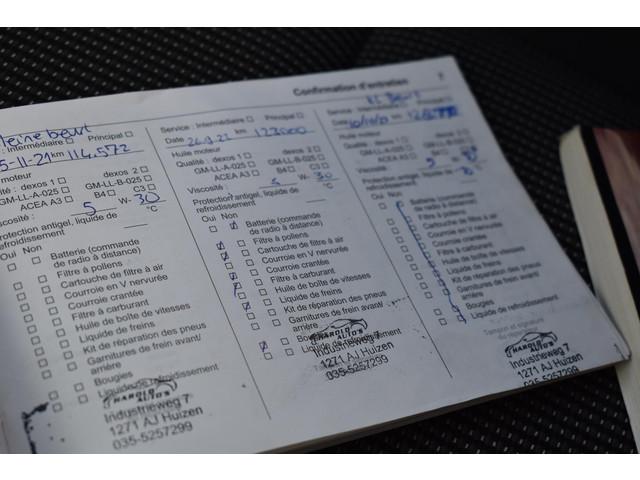 Confirmation d'entretien
7
Kleine beurt
: Intermédiaire Principal
5-11-21 km 114.572
moteur
Qualité : dexos 1 dexos 2
GM-LL-A-025 GM-LL-B-025
ACEA A3 B4 C3
Viscosité : 5 W- 30
Protection antigel, liquide de
refroidissement °C
Oui Non
Batterie (commande
de radio à distance)
Filtre à pollens
Cartouche de filtre à air
Courroie en V nervurée
Courroie crantée
Filtre à carburant
Huile de boîte de vitesses
Liquide de freins
Kit de réparation des pneus
Garnitures de frein avant/
arrière
Bougies
Liquide de refroidissement
HAROLD AUTO'S
Industrieweg 7
1271 AJ Huizen
035-5257299
Service : Intermédiaire Principal
Date 26.9.22 km 123000
Huile moteur
Qualité : dexos 1 dexos 2
GM-LL-A-025 GM-LL-B-025
ACEA A3 B4 C3
Viscosité : 5 W- 30
Protection antigel, liquide de
refroidissement °C
Oui Non
Batterie (commande
de radio à distance)
Filtre à pollens
Cartouche de filtre à air
Courroie en V nervurée
Courroie crantée
Filtre à carburant
Huile de boîte de vitesses
Liquide de freins
Kit de réparation des pneus
Garnitures de frein avant/
arrière
Bougies
Liquide de refroidissement
HAROLD AUTO'S
Industrieweg 7
1271 AJ Huizen
035-5257299
Service : Intermédiaire Principal
Date km
Huile moteur
Qualité : dexos 1 dexos 2
GM-LL-A-025 GM-LL-B-025
ACEA A3 B4 C3
Viscosité : W-
Protection antigel, liquide de
refroidissement
Oui Non
Batterie (commande
de radio à distance)
Filtre à pollens
Cartouche de filtre à air
Courroie en V nervurée
Courroie crantée
Filtre à carburant
Huile de boîte de vitesses
Liquide de freins
Kit de réparation des pneus
Garnitures de frein avant/
arrière
Bougies
Liquide de refroidissement
Tampon et signature
HAROLD AUTO'S
Industrieweg 7
1271 AJ Huizen
035-5257299